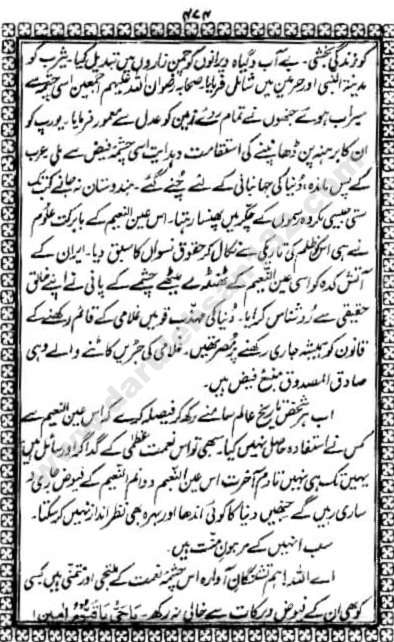 ۴۷۴
کو زندگی بخشی۔ بے آب و گیاہ ویرانوں کو چمن زاروں میں تبدیل کیا۔ یثرب کو
مدینۃ النبی اور حرمین میں شامل فرمایا۔ صحابہ رضوان اللہ علیہم اجمعین اسی چشمہ سے
سیراب ہوئے جنھوں نے تمام روئے زمین کو عدل سے معمور فرمایا۔ یورپ کو
ان کا برہنہ پن ڈھانپنے کی استقامت و ہدایت اسی چشمۂ فیض سے ملی۔ عرب
کے پس ماندہ، دنیا کی جہانبانی کے لئے چُنے گئے۔ ہندوستان نہ جانے کب تک
ستی جیسی مکروہ رسموں کے چکر میں پھنسا رہتا۔ اس عین النعیم کے بابرکت علوم
نے ہی اس ظلم کی تاریکی سے نکال کر حقوق نسواں کا سبق دیا۔ ایران کے
آتش کدہ کو اسی عین النعیم کے ٹھنڈے میٹھے چشمے کے پانی نے اپنے خالق
حقیقی سے روشناس کرایا۔ دنیا کی مہذب قومیں غلامی کے قائم رکھنے کے
قانون کو ہمیشہ جاری رکھنے پر مُصر تھیں۔ غلامی کی جڑیں کاٹنے والے وہی
صادق المصدوق منبع فیض ہیں۔
اب ہر شخص تاریخ عالم سامنے رکھ کر فیصلہ کرے کہ اس عین النعیم سے
کس نے استفادہ حاصل نہیں کیا۔ سبھی تو اس نعمت عظمٰی کے گداگر اور سائل ہیں
یہیں تک ہی نہیں تا دمِ آخرت اس عین النعیم و دائم النعیم کے فیوض جاری و
ساری رہیں گے جنھیں دنیا کا کوئی اندھا اور بہرہ بھی نظر انداز نہیں کر سکتا۔
سب انہیں کے مرہون منت ہیں۔
اے اللہ! ہم تشنگانِ آوارہ اس چشمۂ نعمت کے ملتجی اور متمنی ہیں کسی
کو بھی ان کے فیوض و برکات سے خالی نہ رکھ۔ یَا حَیُّ یَا قَیُّوْمُ اٰمین!